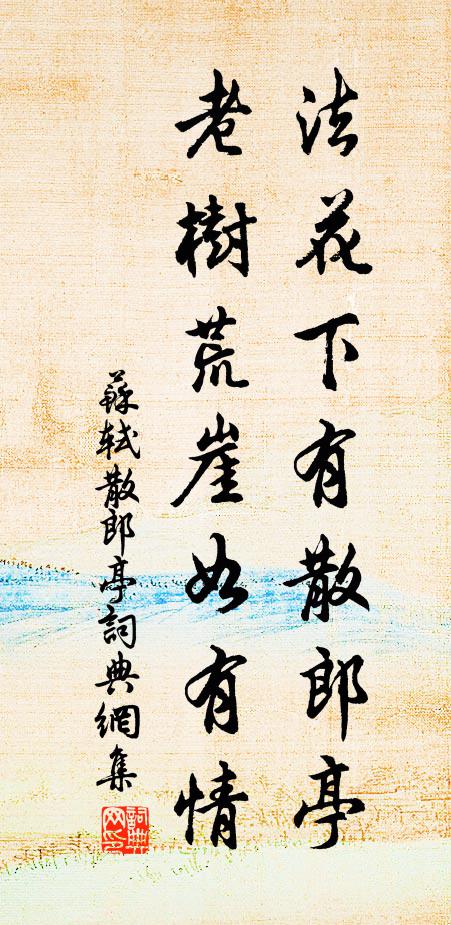 法花下有散郎亭
老樹荒崖如有情
蘇軾散郎亭詞典網集
詞典網印